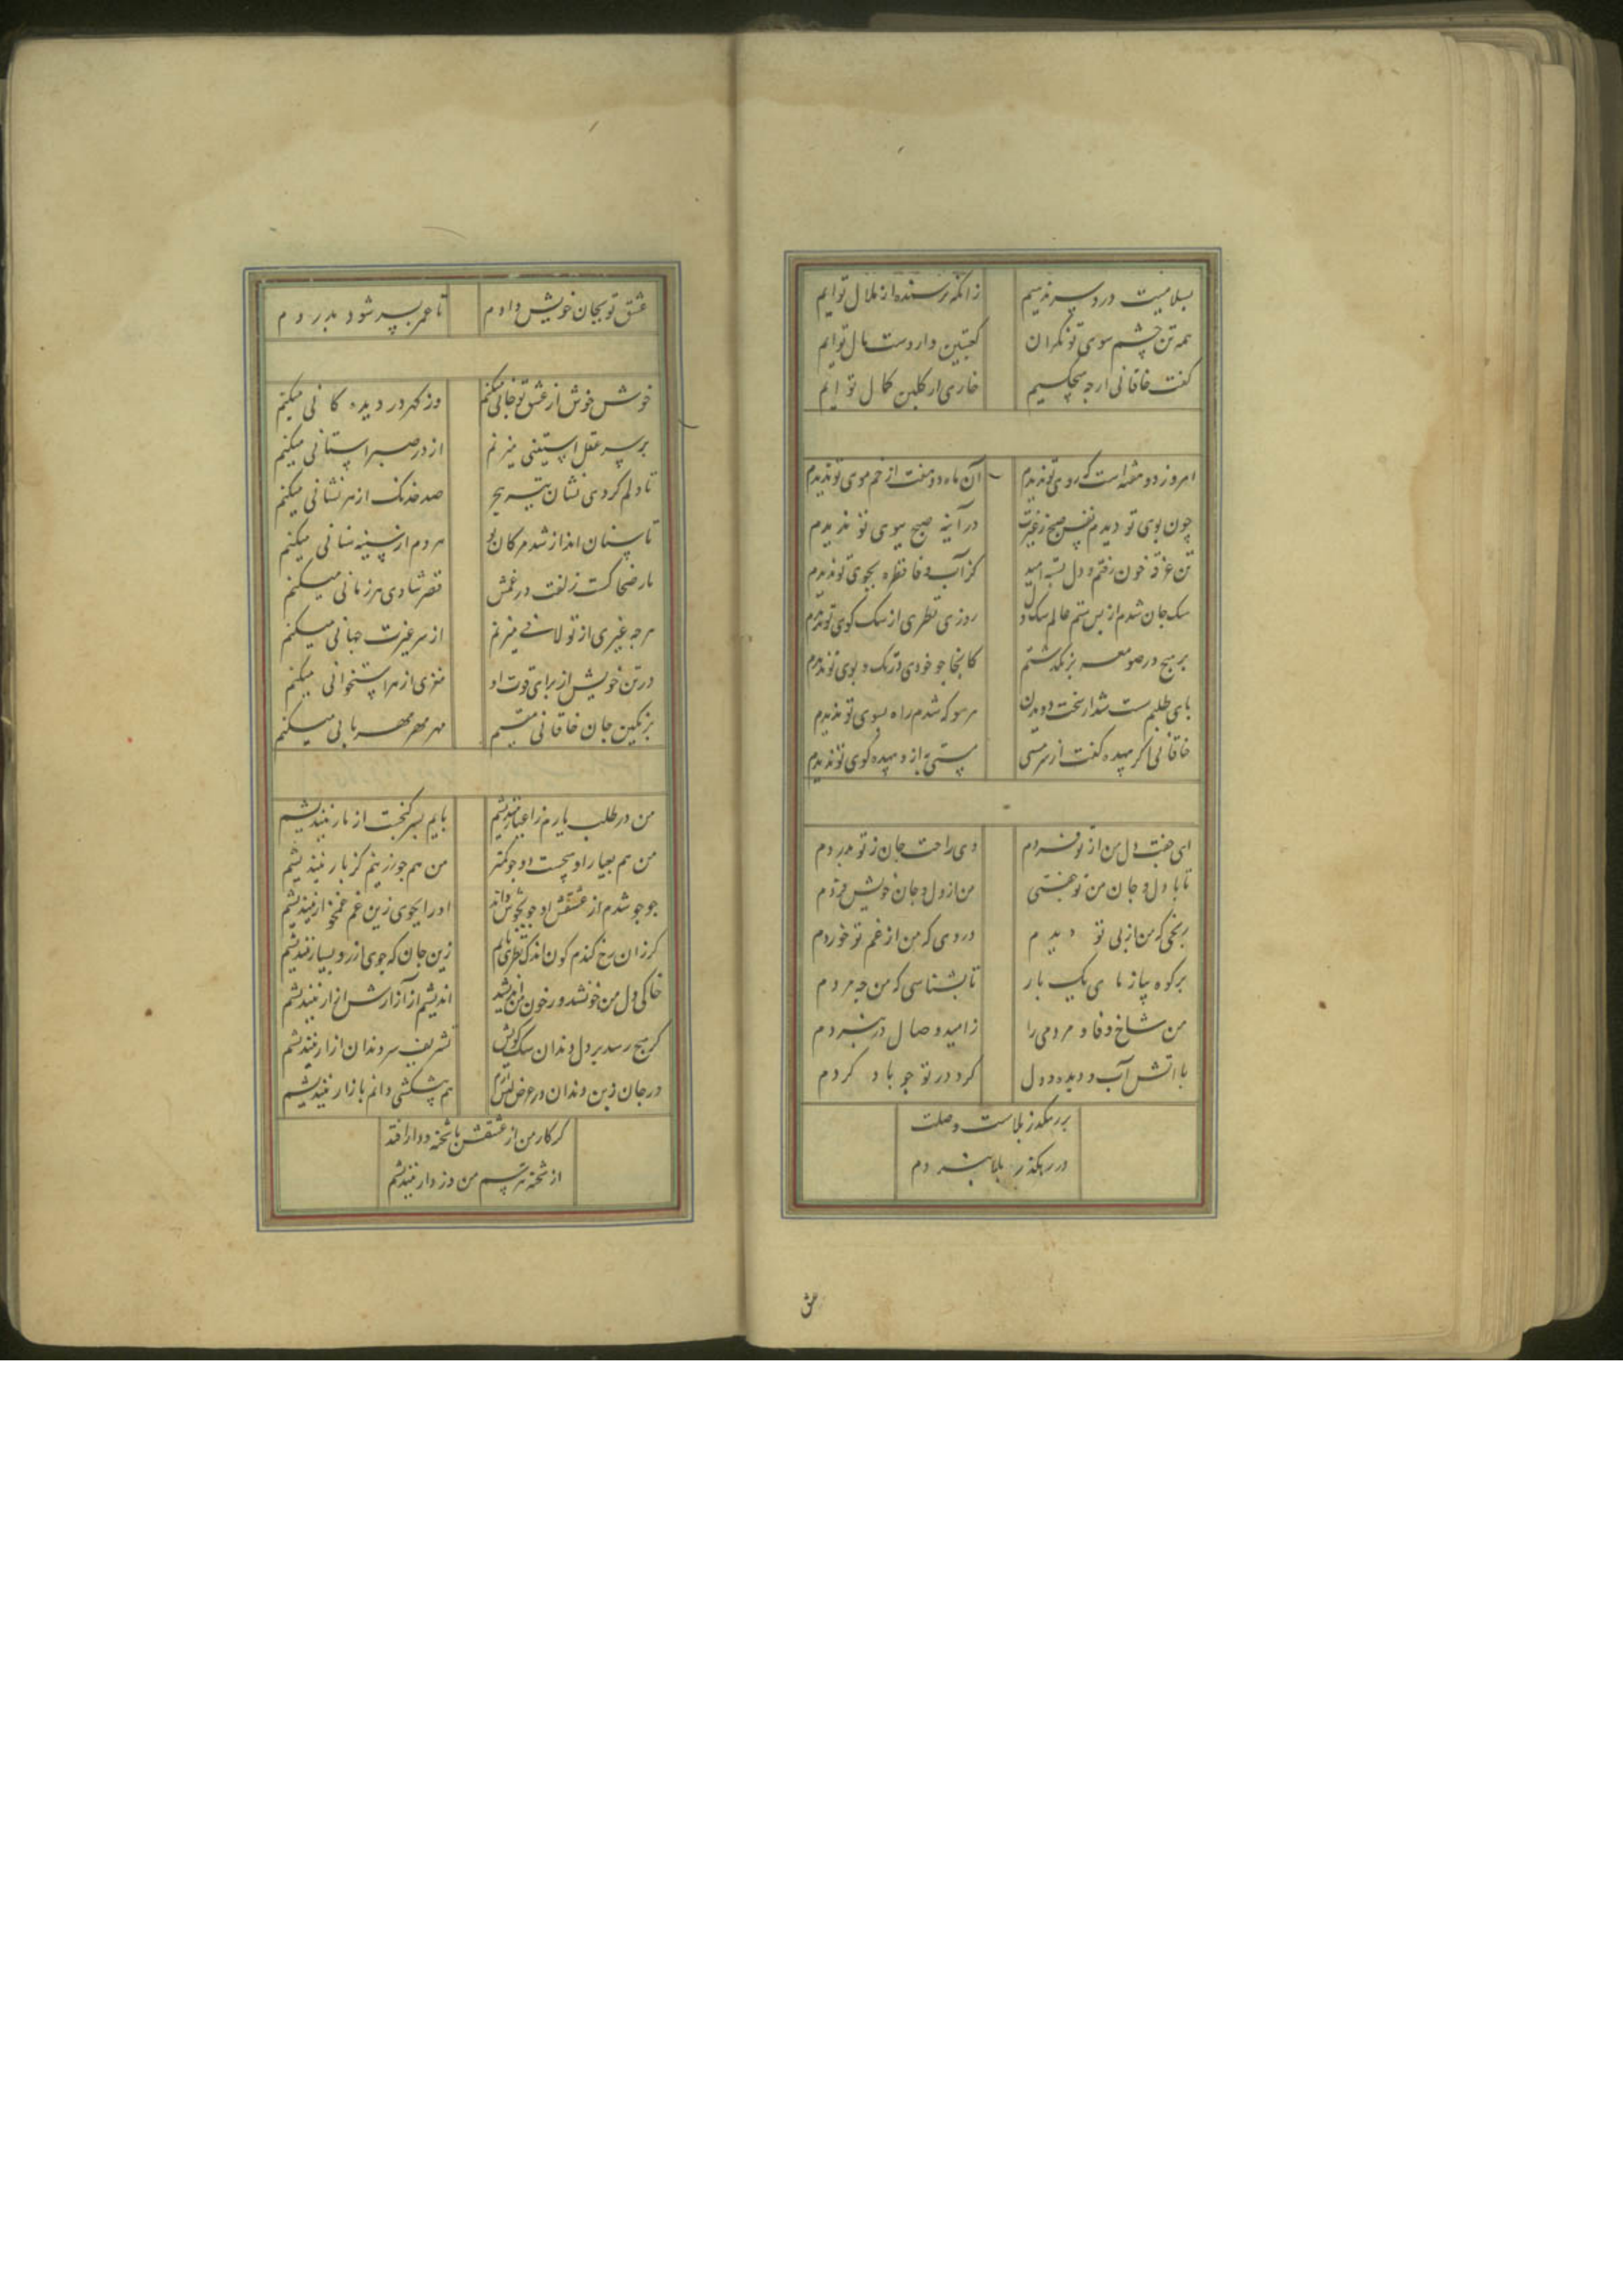 بسلامیت درد سر ندهیم زانکه ترسنده از ملال توایم
همه تن چشم سوی تو نکران کعبتین وار دست مال توایم
کفت خاقانی ارجه هیچکسیم خاری از کلبن کمال توایم
امروز دو هفته است که روی تو ندیدم آن ماه دو هفت از خم موی تو ندیدم
چون بوی تو دیدم نفس صبح ز غیرت در آینه صبح ببوی تو ندیدم
تن غرقه خون رفتم و دل تشنه امید کز آب وفا قطره بجوی تو ندیدم
سک جان شدم از بس ستم عالم سک دل روزی نظری از سک کوی تو ندیدم
بر هیچ در صومعه بر نکدشتم کانجا جو خودی در تک و پوی تو ندیدم
بای طلبم سست شد از سخت دویدن هر سو که شدم راه بسوی تو ندیدم
خاقانی اکر بیهده کفت از سر مستی مستی به از و بیهده کوی تو ندیدم
ای جفت دل من از تو فردم وی راحت جان ز تو بدردم
تا با دل و جان من تو جفتی من از دل و جان خویش فردم
رنجی که من از بی تو دیدم دردی که من از غم تو خوردم
بر کوه بیازمای یک بار تا بشناسی که من جه مردم
من شاخ وفا و مردمی را ز امید وصال در نبردم
با اتش آب دیده و دل کرد در تو جو باد کردم
بر رهکذر بلاست وصلت
در رهکذر بلا نبردم
عشق
عشق تو بجان خویش دادم تا عمر بسر شود بدردم
خوش خوش از عشق تو جانی میکنم وز کهر در دیده کانی میکنم
بر سر عقل استینی میزنم از در صبر استانی میکنم
تا دلم کردی نشان تیر هجر صد خدنک از هر نشانی میکنم
تا سنان انداز شد مژکان تو هر دم از سینه سنانی میکنم
مار ضحاکست زلفت در غمش قصر شادی هر زمانی میکنم
هر جه غیری از تو لافی میزنم از سر غیرت جهانی میکنم
در تن خویش از برای قوت او مغزی از هر استخوانی میکنم
بر نکین جان خاقانی مقیم مهر مهر مهربانی میکنم
من در طلب یارم ز اغیار نیندیشم بایم بسر کنجست از مار نیندیشم
من هم بعیار او هیچست دو جو کمتر من هم جو زرینم کز بار نیندیشم
جو جو شدم از عشقش او جو بجوش داند او را بجوی زین غم غمخوار نیندیشم
کر زان رخ کندم کون اندک نظری یابم زین جان که جوی ارزد بسیار نیندیشم
خاکی دل من خون شد در خون اندیشد اندیشم از آزارش از ار نیندیشم
کر هیچ رسد بر دل دندان سک کویش تشریف سر دندان از ار نیندیشم
در جان زین دندان در عرض هم بیشکشی دانم بازار نیندیشم
کر کار من از عشقش با شحنه و دار افتد
از شحنه نترسم من وز دار نیندیشم